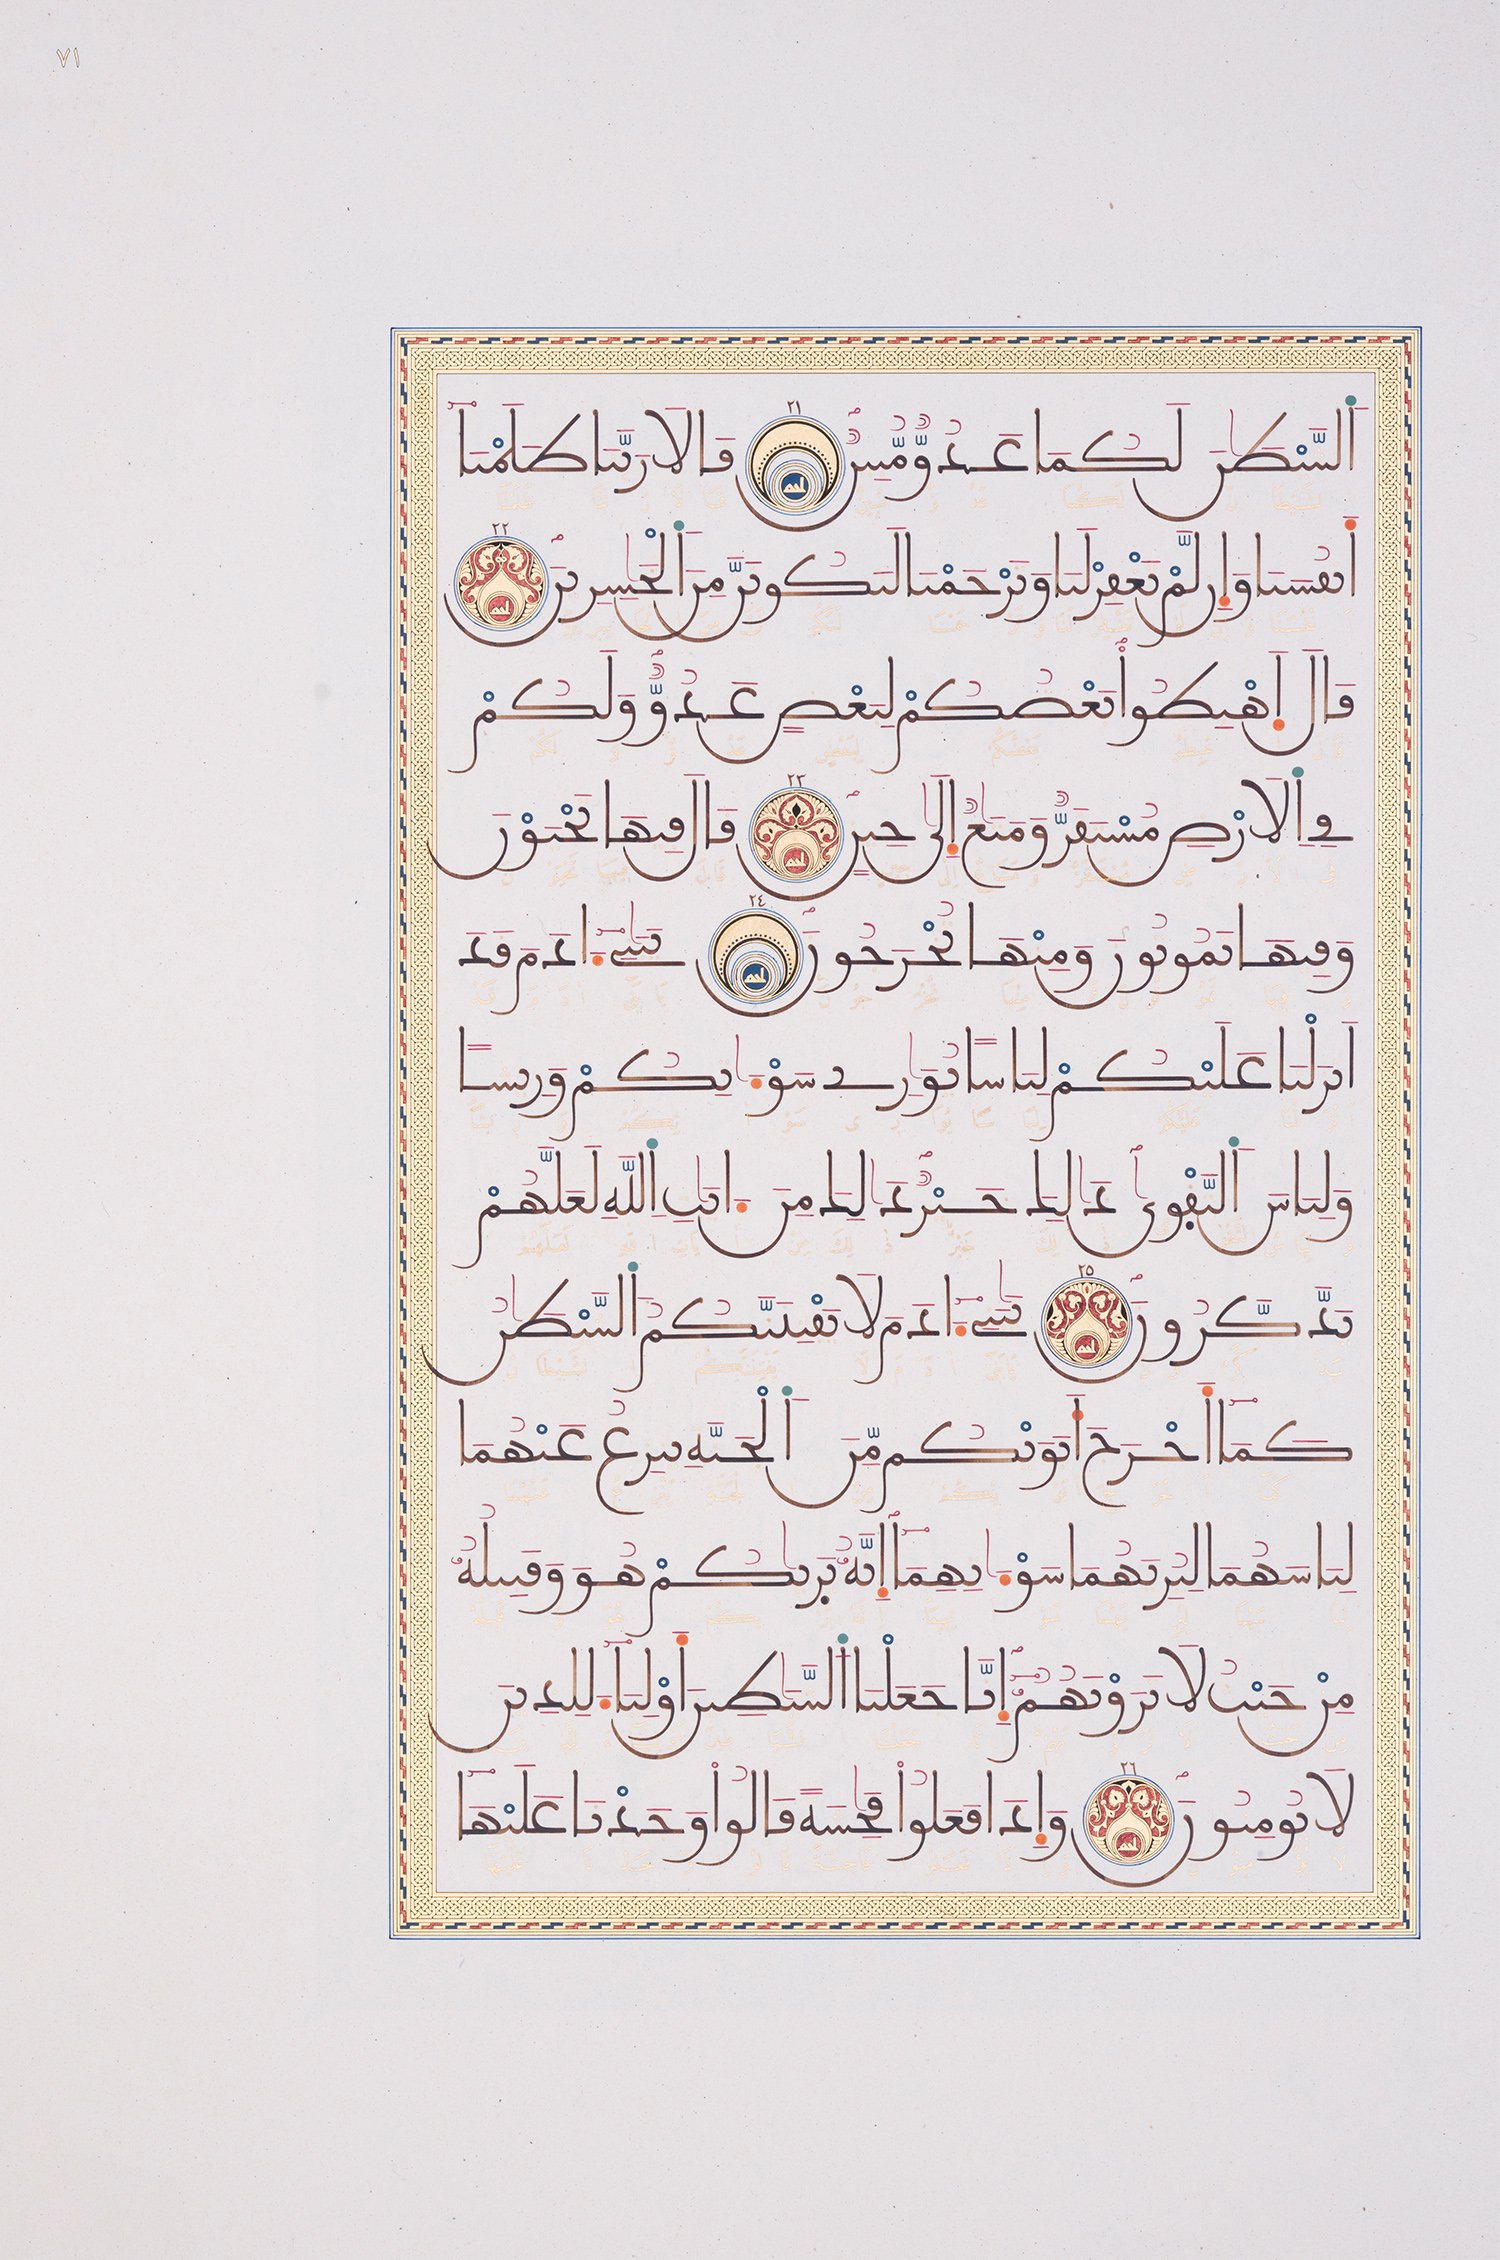 ٧١
اَلشَّيْطَٰنَ لَكُمَا عَدُوٌّ مُّبِينٌ ٢١ قَالَا رَبَّنَا ظَلَمْنَآ
أَنفُسَنَا وَإِن لَّمْ تَغْفِرْ لَنَا وَتَرْحَمْنَا لَنَكُونَنَّ مِنَ اَلْخَٰسِرِينَ ٢٢
قَالَ اَهْبِطُواْ بَعْضُكُمْ لِبَعْضٍ عَدُوٌّ وَلَكُمْ
فِي اِلَارْضِ مُسْتَقَرٌّ وَمَتَٰعٌ إِلَىٰ حِينٍ ٢٣ قَالَ فِيهَا تَحْيَوْنَ
وَفِيهَا تَمُوتُونَ وَمِنْهَا تُخْرَجُونَ ٢٤ يَٰبَنِےٓ ءَادَمَ قَدَ
اَنزَلْنَا عَلَيْكُمْ لِبَاسًا يُوَٰرِے سَوْءَٰتِكُمْ وَرِيشًا
وَلِبَاسَ اَلتَّقْوىٰ ذَٰلِكَ خَيْرٌ ذَٰلِكَ مِنَ ءَايَٰتِ اِللَّهِ لَعَلَّهُمْ
يَذَّكَّرُونَ ٢٥ يَٰبَنِےٓ ءَادَمَ لَا يَفْتِنَنَّكُمُ اُلشَّيْطَٰنُ
كَمَآ أَخْرَجَ أَبَوَيْكُم مِّنَ اَلْجَنَّةِ يَنزِعُ عَنْهُمَا
لِبَاسَهُمَا لِيُرِيَهُمَا سَوْءَٰتِهِمَآ إِنَّهُۥ يَرَىٰكُمْ هُوَ وَقَبِيلُهُۥ
مِنْ حَيْثُ لَا تَرَوْنَهُمُۥٓ إِنَّا جَعَلْنَا اَلشَّيَٰطِينَ أَوْلِيَآءَ لِلذِينَ
لَا يُومِنُونَ ٢٦ وَإِذَا فَعَلُواْ فَٰحِشَةً قَالُواْ وَجَدْنَا عَلَيْهَآ